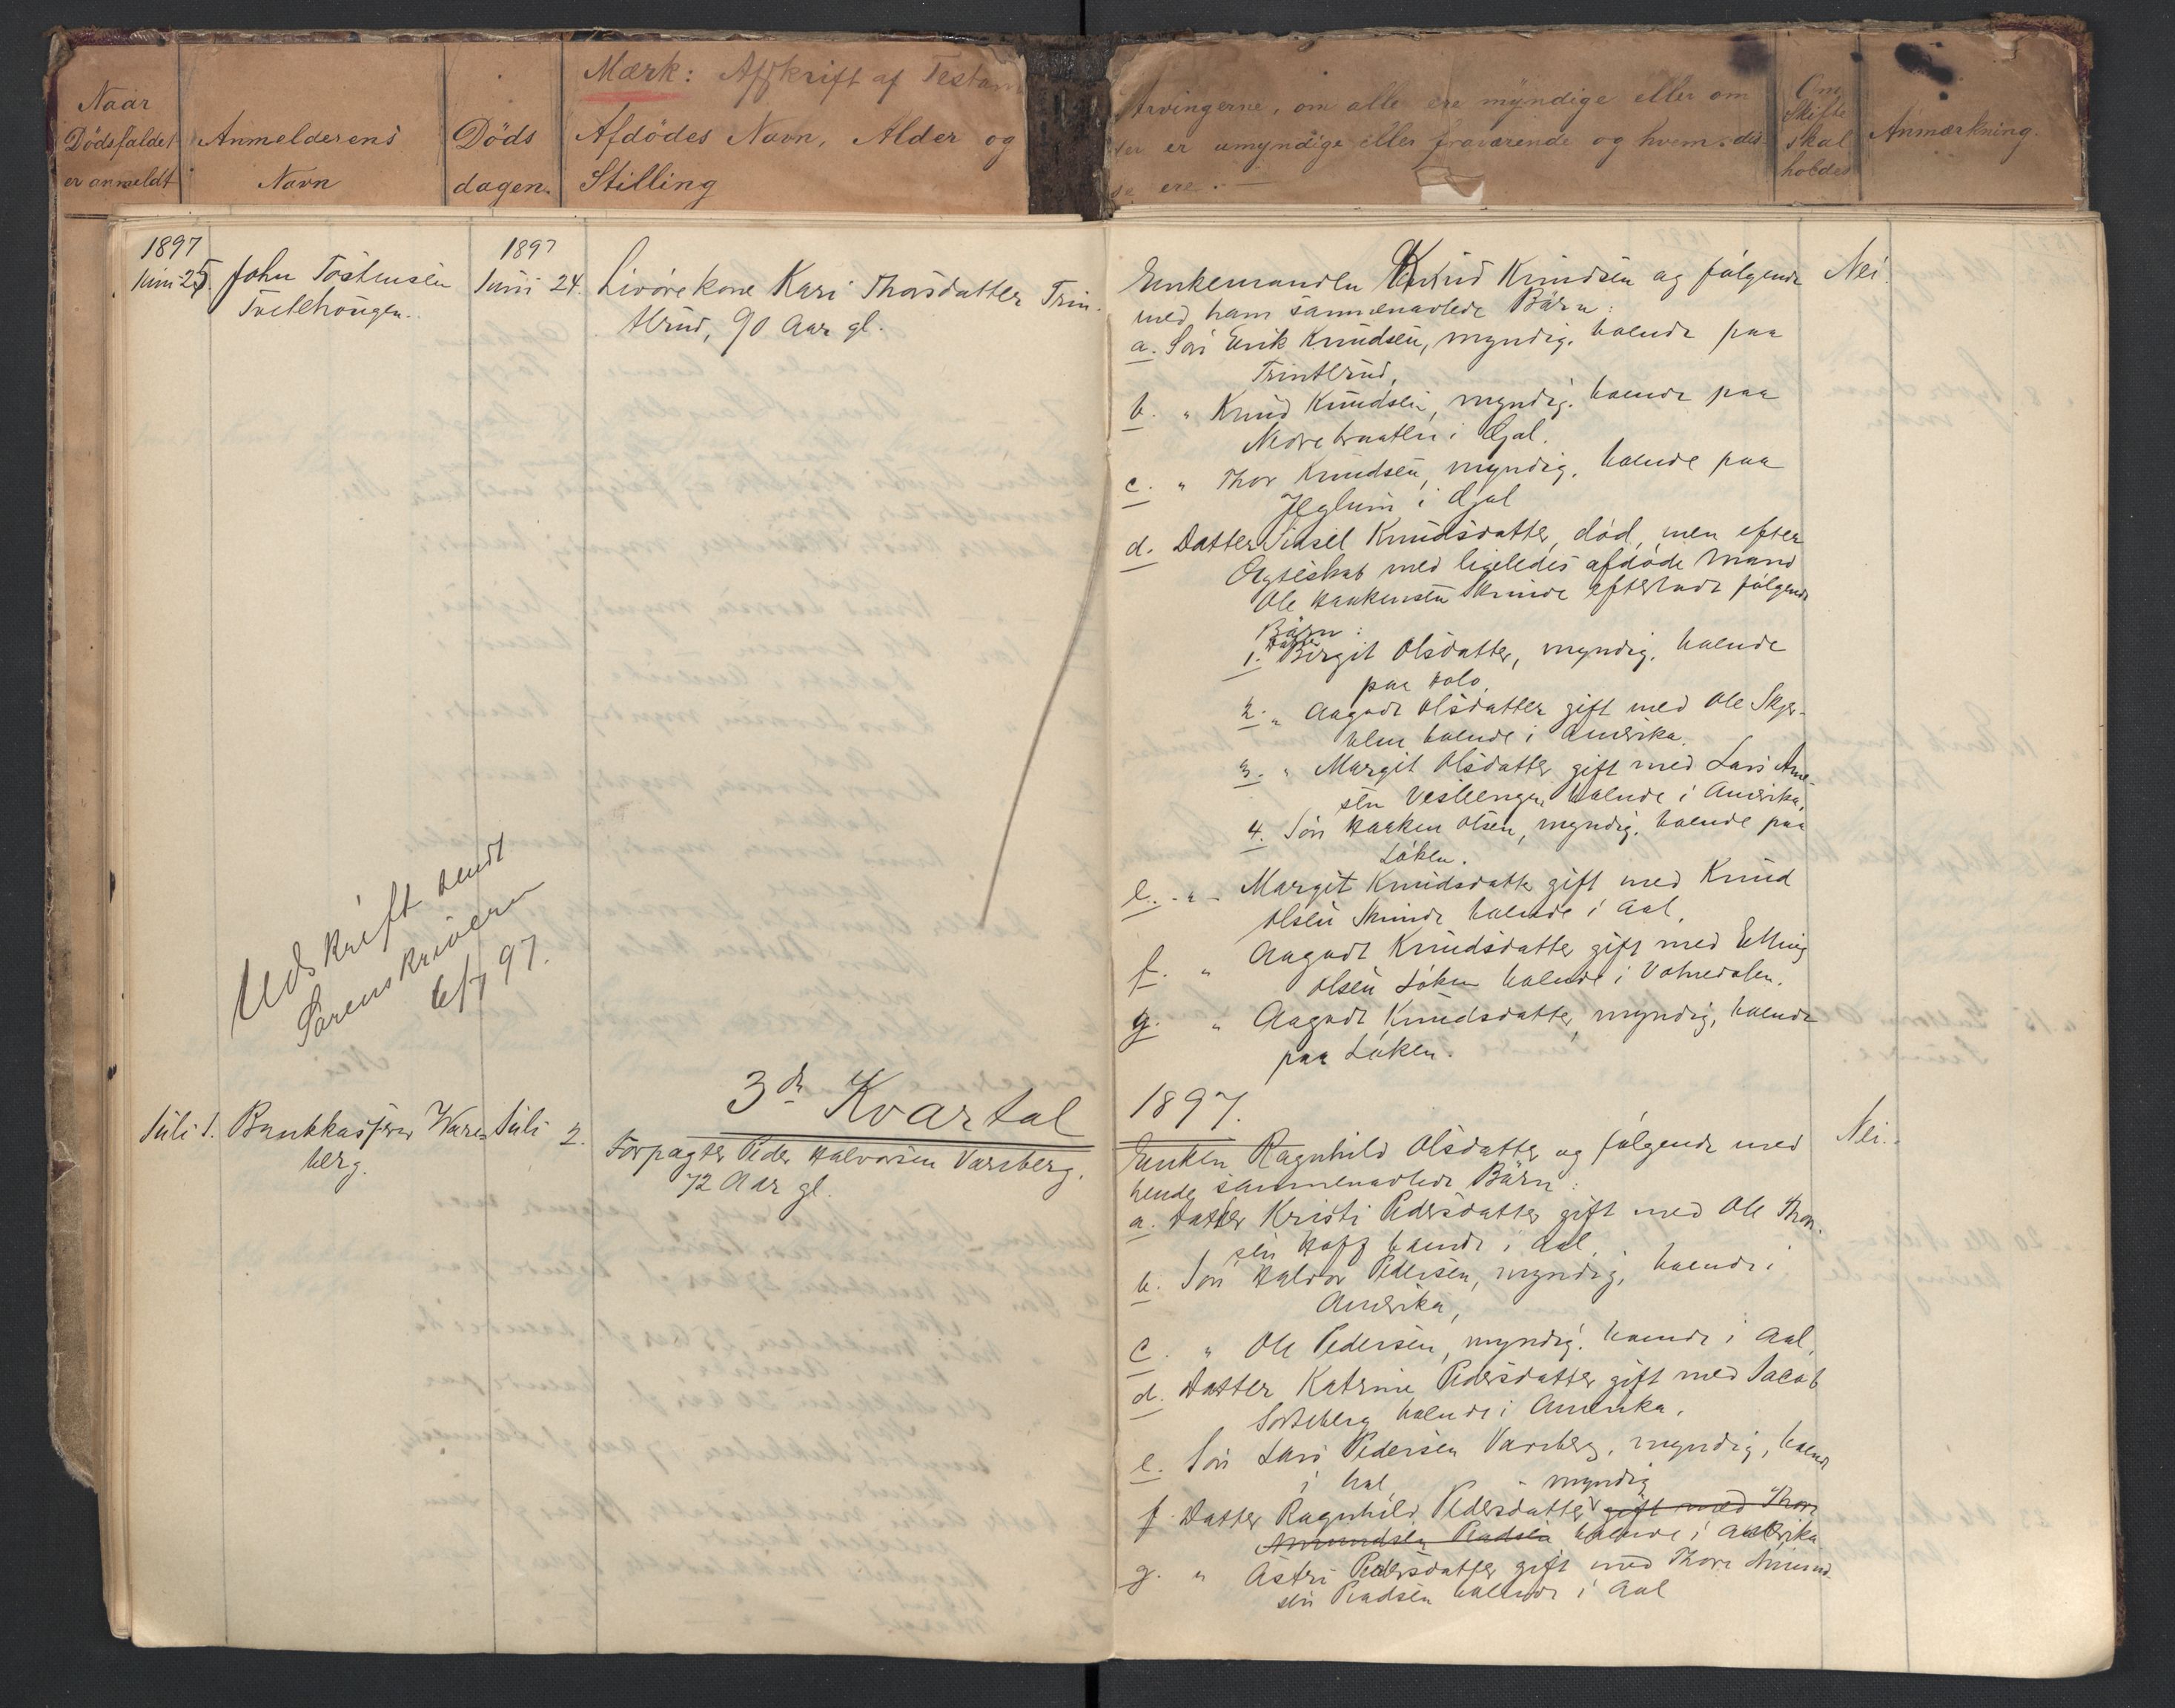 Mærk: Afskrift af Testam
Naar
Dødsfaldet
er anmeldt
Anmelderens
Navn
Døds
dagen.
Afdødes Navn, Alder og
Stilling
Arvingerne, om alle ere myndige eller om
er umyndige eller fraværende og hvem dis-
se ere.
Om
Skifte
skal
holdes
Anmærkning.
1897
Juni 25.
John Tostensen
1897
Juni 24.
Livørekone Kari Thorsdatter Trin-
terud, 90 Aar gl.
Enkemanden Knud Knudsen og følgende
med ham sammenavlede Børn:
Nei.
a. Søn Erik Knudsen, myndig, boende paa
Trinterud,
b. " Knud Knudsen, myndig, boende paa
Nedrebraaten i Gol.
c. " Thor Knudsen, myndig, boende paa
Jeglum i Gol
d. Datter Sidsel Knudsdatter, død, men efter
Ægteskab med ligeledes afdøde Mand
Ole Haakensen Skrinde efterladt følgende
Børn:
1. Datter Birgit Olsdatter, myndig, boende
paa Holo.
2. " Aagodt Olsdatter gift med Ole Skjer-
boende i Amerika.
3. " Margit Olsdatter gift med Lars Arne-
sen Veslengen boende i Amerika.
4. Søn Haaken Olsen, myndig, boende paa
Løken.
e. - " - Margit Knudsdatter gift med Knud
Olsen Skrinde boende i Aal.
f. " Aagodt Knudsdatter gift med Elling
Olsen Løken boende i Votnedalen.
g. " Aagodt Knudsdatter, myndig, boende
paa Løken.
Udskrift sendt
Sorenskriveren
6/7 97.
3die Kvartal
1897.
Juli 1.
Bankkasserer Wars-
berg.
Juli 2.
Forpagter Peder Halvorsen Varsberg,
72 Aar gl.
Enken Ragnhild Olsdatter og følgende med
hende sammenavlede Børn:
Nei.
a. Datter Kristi Pedersdatter gift med Ole Thor-
sen Hoff boende i Aal.
b. Søn Halvor Pedersen, myndig, boende i
Amerika,
c. " Ole Pedersen, myndig, boende i Aal,
d. Datter Katrine Pedersdatter gift med Jacob
Sorteberg boende i Amerika.
e. Søn Lars Pedersen Varsberg, myndig, boende
i Aal,
- myndig
f. Datter Ragnhild Pedersdatter gift med Thor
Amundsen boende i Amerika
g. " Astri Pedersdatter gift med Thor Amund-
sen boende i Aal